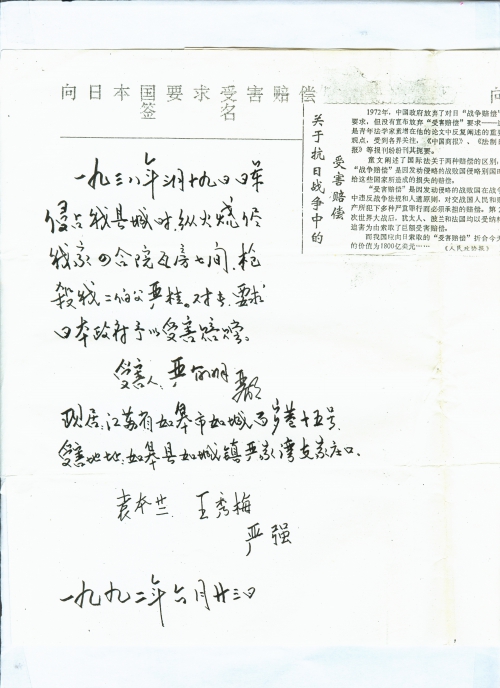 向日本国要求受害赔偿
签名
关于抗日战争中的
受害赔偿
1972年，中国政府放弃了对日“战争赔偿”
要求，但没有宣布放弃“受害赔偿”要求——这
是青年法学家童增在他的论文中反复阐述的重要
观点，受到各界关注，《中国商报》、《法制日
报》等报刊纷纷刊其提要。
童文阐述了国际法关于两种赔偿的区别，
“战争赔偿”是因发动侵略的战败国侵略别国时
给这些国家所造成的损失的赔偿。
“受害赔偿”是因发动侵略的战败国在战争
中违反战争法规和人道原则，对交战国人民和财
产所犯下多种严重罪行而必须承担的赔偿。第二
次世界大战后，犹太人、波兰和法国均以受纳粹
迫害为由索取了巨额受害赔偿。
而我国应向日索取的“受害赔偿”折合今天
的价值为1800亿美元……
《人民政协报》
一九三八年三月十九日日寇
侵占我县城时纵火烧佟
我家四合院瓦房七间，枪
殺我二伯父严桂。对专要求
日本政府予以受害赔偿。
受害人：严
现居：江苏省如皋市如城 十五号
受害地址：如皋县如城镇严家湾支家庄口。
袁本兰 王秀梅
严强
一九九二年六月廿三日